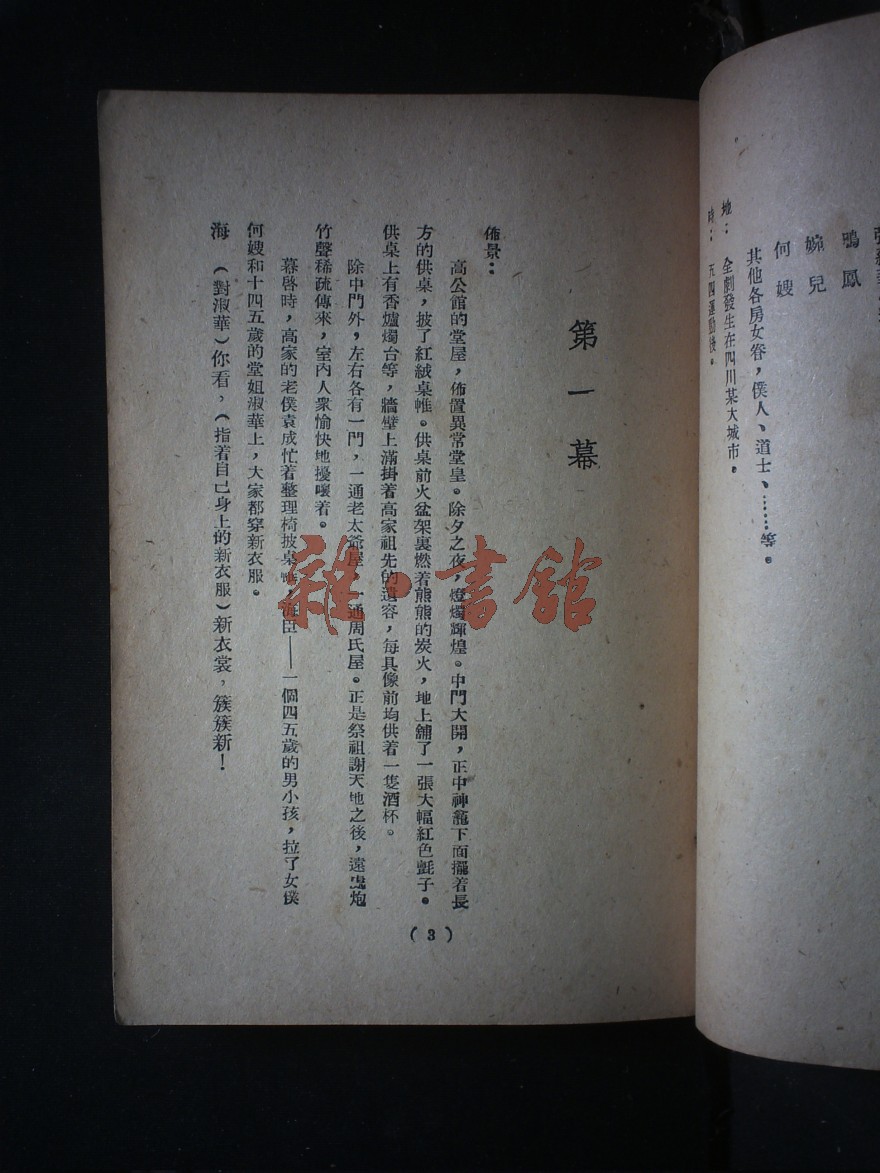 鳴鳳
婉兒
何嫂
其他各房女眷，僕人、道士、……等。
地： 全劇發生在四川某大城市。
時： 五四運動後。
第一幕
佈景：
高公館的堂屋，佈置異常堂皇。除夕之夜，燈燭輝煌。中門大開，正中神龕下面擺着長
方的供桌，披了紅絨桌帷。供桌前火盆架裏燃着熊熊的炭火，地上舖了一張大幅紅色氈子。
供桌上有香爐燭台等，牆壁上滿掛着高家祖先的遺容，每具像前均供着一隻酒杯。
除中門外，左右各有一門，一通老太爺屋，一通周氏屋。正是祭祖謝天地之後，遠處炮
竹聲稀疏傳來，室內人衆愉快地擾嚷着。
幕啓時，高家的老僕袁成忙着整理椅披桌帷，海臣——一個四五歲的男小孩，拉了女僕
何嫂和十四五歲的堂姐淑華上，大家都穿新衣服。
海 （對淑華）你看，（指着自己身上的新衣服）新衣裳，簇簇新！
（3）
雜·書館